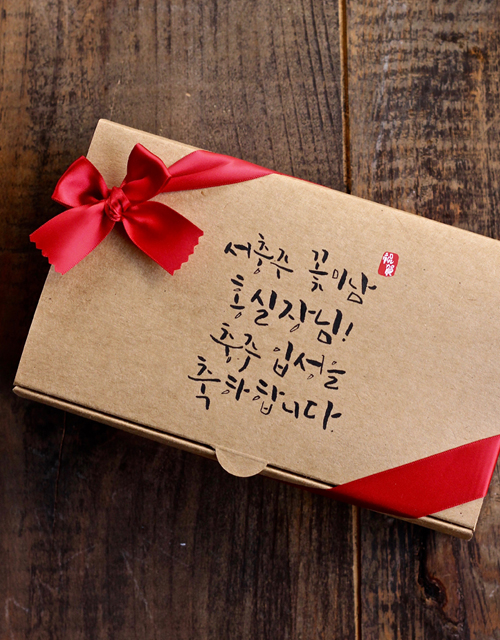 서충주 꽃미남
홍실장님!
충주 입성을
축하합니다.